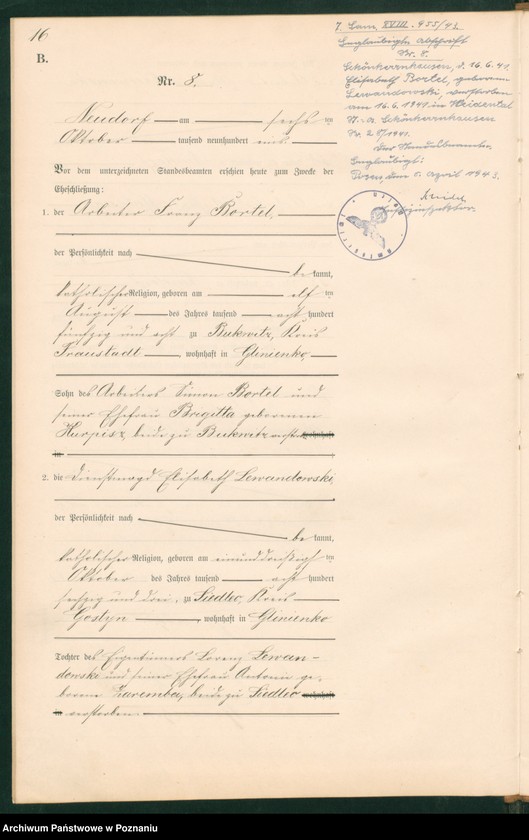 16
B.
Nr. 8.
Neudorf am sechs ten
Oktober tausend neunhundert eins.
Vor dem unterzeichneten Standesbeamten erschien heute zum Zwecke der
Eheschließung:
1. der Arbeiter Franz Bortel,
der Persönlichkeit nach
be kannt,
katholischer Religion, geboren am elf ten
August des Jahres tausend acht hundert
fünfzig und acht zu Bukwitz, Kreis
Fraustadt, wohnhaft in Glinienko,
Sohn des Arbeiters Simon Bortel und
seiner Ehefrau Brigetta geborenen
beide zu Bukwitz wohnhaft
in
2. die Dienstmagd Elisabeth Lewandowski,
der Persönlichkeit nach
be kannt,
katholischer Religion, geboren am einunddreißigsten
Oktober des Jahres tausend acht hundert
sechzig und drei, zu Siedlec, Kreis
Gostyn, wohnhaft in Glinienko
Tochter des Eigentümers Lorenz Lewan-
dowski und seiner Ehefrau Antonie ge-
borene Zaremba, beide zu Siedlec wohnhaft
in verstorben.
7. XVIII. 455/41
Beglaubigte Abschrift
Nr. 8.
Schönherrnhausen, d. 16.6.41.
Elisabeth Bortel, geborene
Lewandowski, verstorben
am 16.6.1941 in Heidental
St. A. Schönherrnhausen
Nr. /1941.
Der Standesbeamte.
Beglaubigt:
Posen, den April 1943.
Justizinspektor.
Archiwum Państwowe w Poznaniu